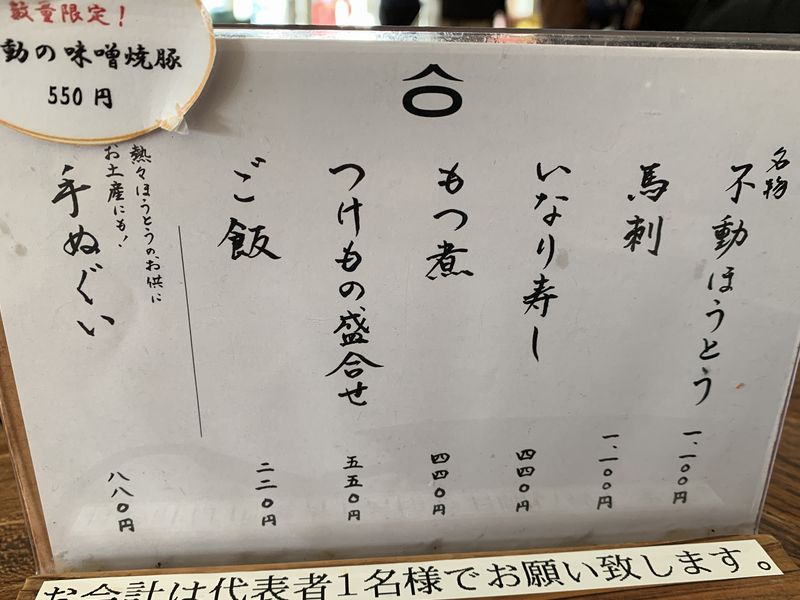 名物
不動ほうとう
一、一〇〇円
馬刺
一、一〇〇円
いなり寿し
四四〇円
もつ煮
四四〇円
つけもの盛合せ
五五〇円
ご飯
二二〇円
熱々ほうとうのお供に
お土産にも!
手ぬぐい
八八〇円
数量限定!
動の味噌焼豚
550円
お会計は代表者1名様でお願い致します。